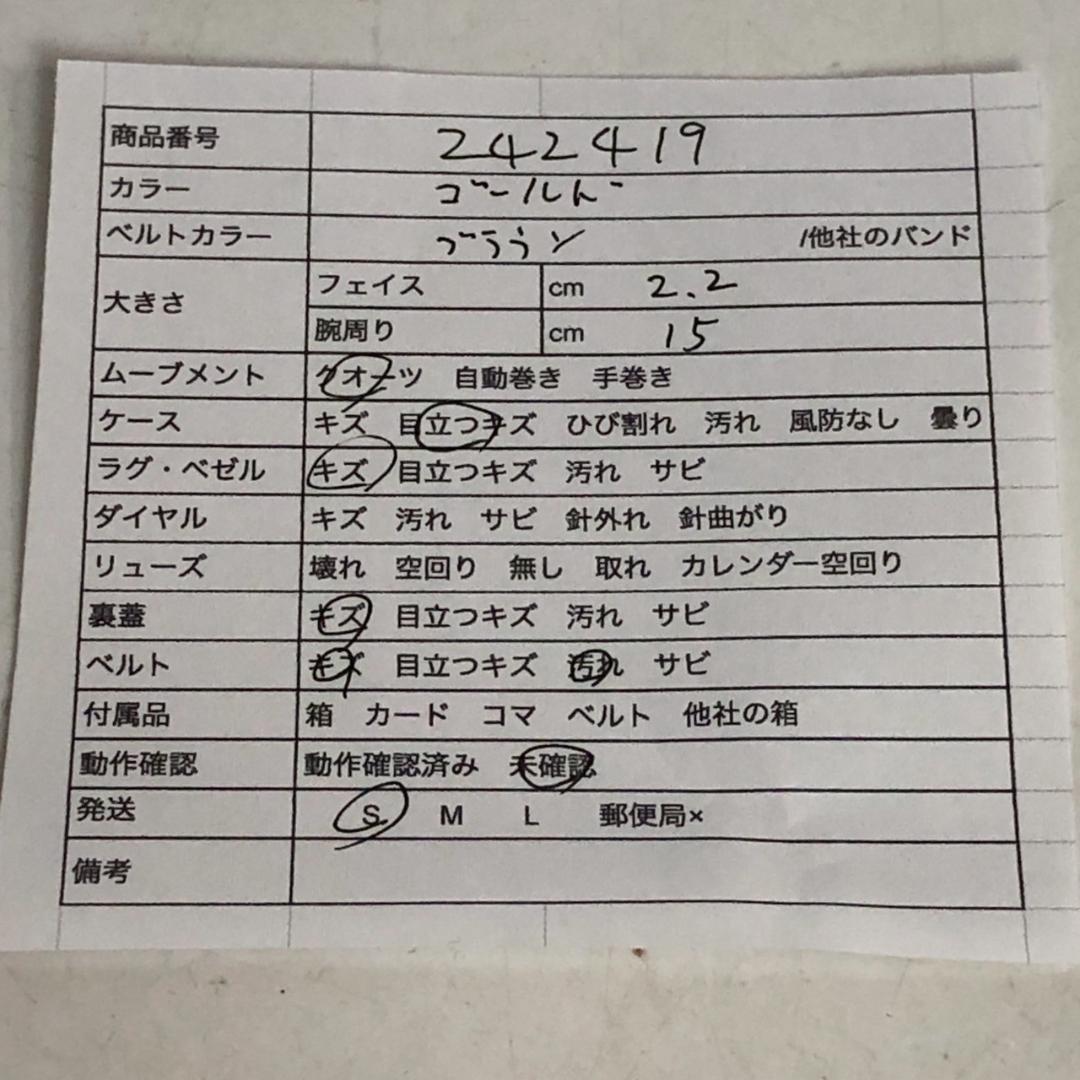 商品番号 242419
カラー ゴールド
ベルトカラー ブラウン /他社のバンド
大きさ フェイス cm 2.2
腕周り cm 15
ムーブメント クオーツ 自動巻き 手巻き
ケース キズ 目立つキズ ひび割れ 汚れ 風防なし 曇り
ラグ・ベゼル キズ 目立つキズ 汚れ サビ
ダイヤル キズ 汚れ サビ 針外れ 針曲がり
リューズ 壊れ 空回り 無し 取れ カレンダー空回り
裏蓋 キズ 目立つキズ 汚れ サビ
ベルト キズ 目立つキズ 汚れ サビ
付属品 箱 カード コマ ベルト 他社の箱
動作確認 動作確認済み 未確認
発送 S M L 郵便局×
備考